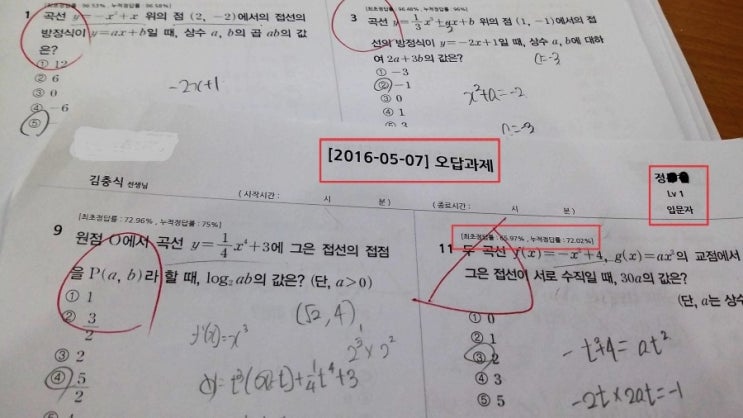 [최초정답률 : 96.53% , 누적정답률 : 96.58%]
1 곡선 y=-x²+x 위의 점 (2, -2)에서의 접선의
방정식이 y=ax+b일 때, 상수 a, b의 곱 ab의 값
은?
① 12
② 6
③ 0
④ -6
⑤
-2x+1
3 곡선 y=1/3x³+ax+b 위의 점 (1, -1)에서의 접
선의 방정식이 y=-2x+1일 때, 상수 a, b에 대하
여 2a+3b의 값은?
① -3
② -1
③ 0
④ 1
⑤ 3
a=-3
x²+a=-2
a=-3
[2016-05-07] 오답과제
김충식 선생님
(시작시간 : 시 분)
(종료시간 : 시 분)
정
Lv 1
입문자
[최초정답률 : 72.96% , 누적정답률 : 75%]
9 원점 O에서 곡선 y=1/4x⁴+3에 그은 접선의 접점
을 P(a, b)라 할 때, log₂ab의 값은? (단, a>0)
① 1
② 3/2
③ 2
④ 5/2
(√2, 4)
f'(x)=x³
2^3 × 2^2
y=t³(x-t)+1/4t⁴+3
[최초정답률 : 65.97% , 누적정답률 : 72.02%]
11 두 곡선 f(x)=-x²+4, g(x)=ax²의 교점에서
그은 접선이 서로 수직일 때, 30a의 값은?
(단, a는 상수
① 0
② 1
③ 2
④ 3
⑤ 5
-t²+4=at²
-2t×2at=-1